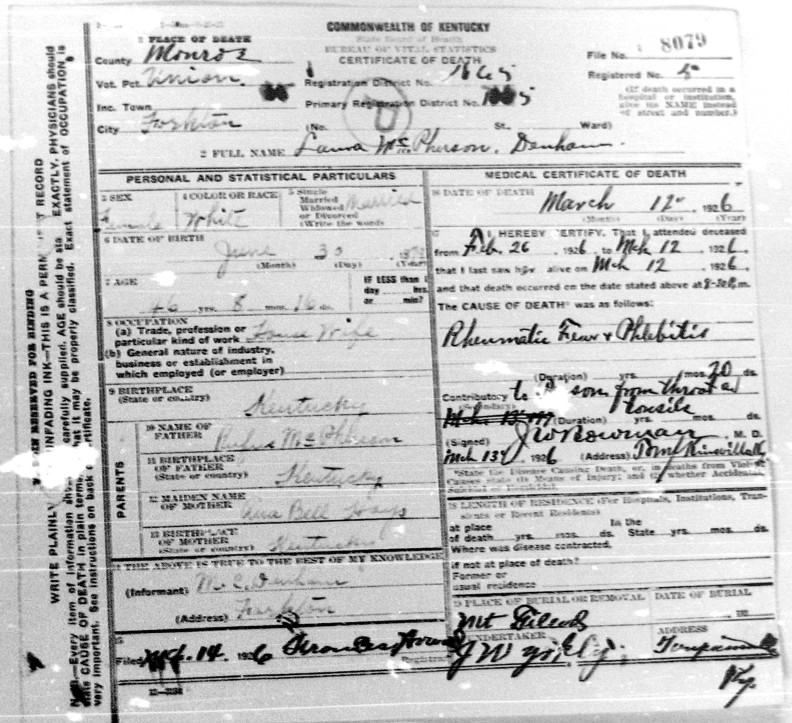 COMMONWEALTH OF KENTUCKY
State Board of Health
BUREAU OF VITAL STATISTICS
CERTIFICATE OF DEATH
1 PLACE OF DEATH
County Monroe
Vot. Pct. Union
Inc. Town
City Forkton
Registration District No. 1665
Primary Registration District No.
(No. St., Ward)
File No. 8079
Registered No.
(If death occurred in a
hospital or institution,
give its NAME instead
of street and number.)
2 FULL NAME Laura McPherson Denham
PERSONAL AND STATISTICAL PARTICULARS
3 SEX
Female
4 COLOR OR RACE
White
5 Single
Married
Widowed
or Divorced
(Write the word)
Married
6 DATE OF BIRTH
June
(Month) (Day) (Year)
7 AGE
46 yrs. 8 mos. 16 ds.
IF LESS than 1
day hrs.
or min?
8 OCCUPATION
(a) Trade, profession or
particular kind of work House Wife
(b) General nature of industry,
business or establishment in
which employed (or employer)
9 BIRTHPLACE
(State or country)
Kentucky
PARENTS
10 NAME OF
FATHER
Rufus McPherson
11 BIRTHPLACE
OF FATHER
(State or country)
Kentucky
12 MAIDEN NAME
OF MOTHER
Bell Hays
13 BIRTHPLACE
OF MOTHER
(State or country)
Kentucky
14 THE ABOVE IS TRUE TO THE BEST OF MY KNOWLEDGE
(Informant) M. C. Denham
(Address) Forkton
15
Filed 14, 1926
Registrar
MEDICAL CERTIFICATE OF DEATH
16 DATE OF DEATH
March 12 1926
(Month) (Day) (Year)
17 I HEREBY CERTIFY, That I attended deceased
from Feb. 26 1926 to Mch 12 1926
that I last saw her alive on Mch 12 1926
and that death occurred on the date stated above at 8-30 P.m.
The CAUSE OF DEATH* was as follows:
Rheumatic Fever & Phlebitis
(Duration) yrs. mos. 20 ds.
Contributory from throat
(Secondary) tonsils
(Duration) yrs. mos. ds.
(Signed) J W Bowman M. D.
Mch 13, 1926 (Address) Tompkinsville
*State the Disease Causing Death, or, in deaths from Violent
Causes state (1) Means of Injury; and (2) whether Accidental,
Suicidal or Homicidal.
18 LENGTH OF RESIDENCE (For Hospitals, Institutions, Tran-
sients or Recent Residents)
at place In the
of death yrs. mos. ds. State yrs. mos. ds.
Where was disease contracted,
if not at place of death?
Former or
usual residence
19 PLACE OF BURIAL OR REMOVAL DATE OF BURIAL
Mt 192
20 UNDERTAKER ADDRESS
J W
Ky.
MARGIN RESERVED FOR BINDING
WRITE PLAINLY UNFADING INK—THIS IS A PERM RECORD
N.B.—Every item of information should carefully supplied. AGE should be sta EXACTLY, PHYSICIANS should
state CAUSE OF DEATH in plain terms, that it may be properly classified. Exact statement of OCCUPATION is
very important. See instructions on back certificate.